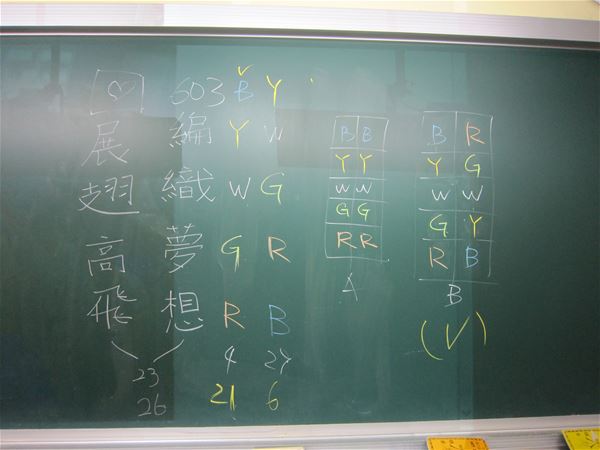 ♡
603
展翅高飛
編織夢想
23
26
B Y
Y W
W G
G R
R B
4 27
21 6
B B
Y Y
W W
G G
R R
A
B R
Y G
W W
G Y
R B
B
(V)